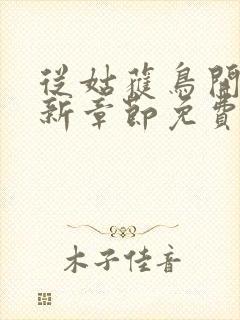 從姑蘿鳥開
新章節免費
木子佳音